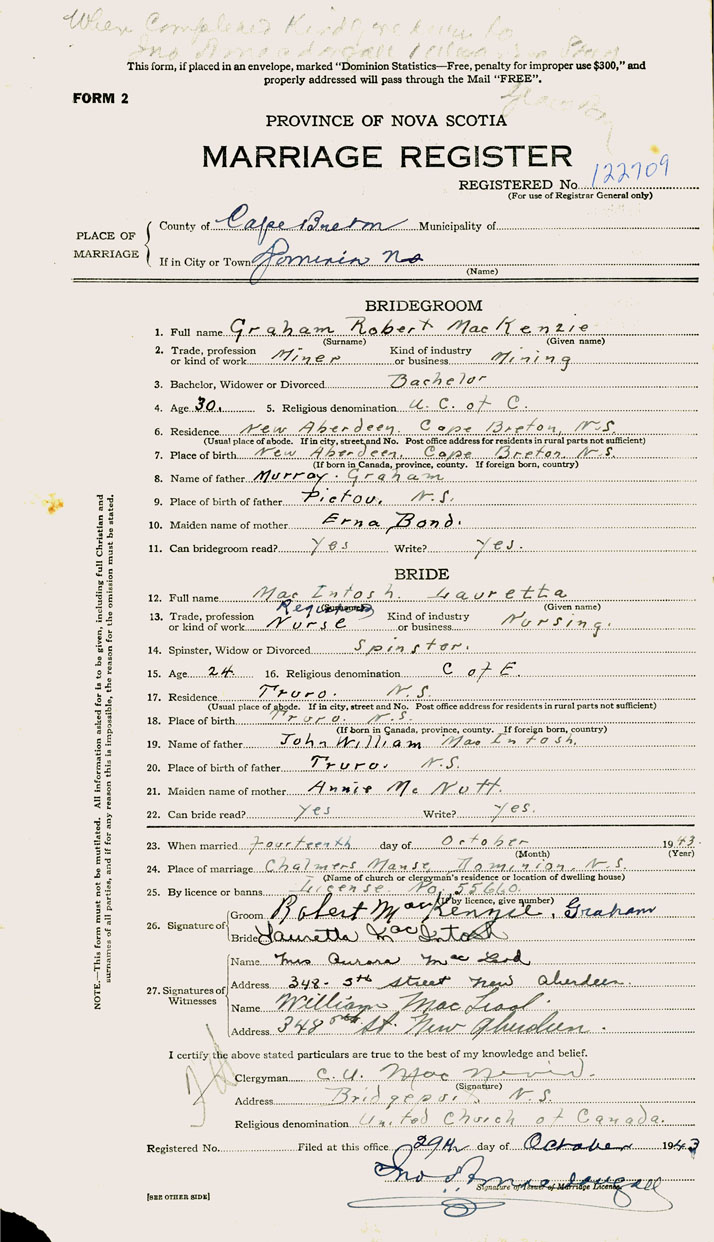 When Completed Kindly return to
Jno
This form, if placed in an envelope, marked “Dominion Statistics—Free, penalty for improper use $300,” and
properly addressed will pass through the Mail “FREE”.
FORM 2
PROVINCE OF NOVA SCOTIA
MARRIAGE REGISTER
REGISTERED No. 122709
(For use of Registrar General only)
PLACE OF MARRIAGE
County of Cape Breton Municipality of
If in City or Town Dominion N.S.
(Name)
BRIDEGROOM
1. Full name Graham Robert MacKenzie
(Surname) (Given name)
2. Trade, profession or kind of work Miner Kind of industry or business Mining
3. Bachelor, Widower or Divorced Bachelor
4. Age 30. 5. Religious denomination U. C. of C.
6. Residence New Aberdeen, Cape Breton, N.S.
(Usual place of abode. If in city, street and No. Post office address for residents in rural parts not sufficient)
7. Place of birth New Aberdeen, Cape Breton, N.S.
(If born in Canada, province, county. If foreign born, country)
8. Name of father Murray Graham
9. Place of birth of father Pictou. N.S.
10. Maiden name of mother Erna Bond.
11. Can bridegroom read? Yes Write? Yes.
BRIDE
12. Full name MacIntosh. Lauretta
(Surname) (Given name)
13. Trade, profession or kind of work Nurse Kind of industry or business Nursing.
14. Spinster, Widow or Divorced Spinstor.
15. Age 24 16. Religious denomination C of E.
17. Residence Truro. N.S.
(Usual place of abode. If in city, street and No. Post office address for residents in rural parts not sufficient)
18. Place of birth Truro. N.S.
(If born in Canada, province, county. If foreign born, country)
19. Name of father John William MacIntosh.
20. Place of birth of father Truro. N.S.
21. Maiden name of mother Annie McNutt.
22. Can bride read? Yes Write? Yes.
23. When married Fourteenth day of October 1943.
(Month) (Year)
24. Place of marriage Chalmers Manse, Dominion, N.S.
(Name of church or clergyman's residence or location of dwelling house)
25. By licence or banns License No. 55660.
(If by licence, give number)
26. Signature of
Groom Robert MacKenzie, Graham
Bride Lauretta MacIntosh
27. Signatures of Witnesses
Name Mrs Aurora MacLeod
Address 348- 5th Street New Aberdeen.
Name William MacLeod.
Address 348 5th St. New Aberdeen.
I certify the above stated particulars are true to the best of my knowledge and belief.
Clergyman C. U. MacNevin.
(Signature)
Address Bridgeport N.S.
Religious denomination United Church of Canada.
Registered No. Filed at this office 29th day of October 1943
Jno
Signature of Issuer of Marriage License
[SEE OTHER SIDE]
NOTE.—This form must not be mutilated. All information asked for is to be given, including full Christian and
surnames of all parties, and if for any reason this is impossible, the reason for the omission must be stated.